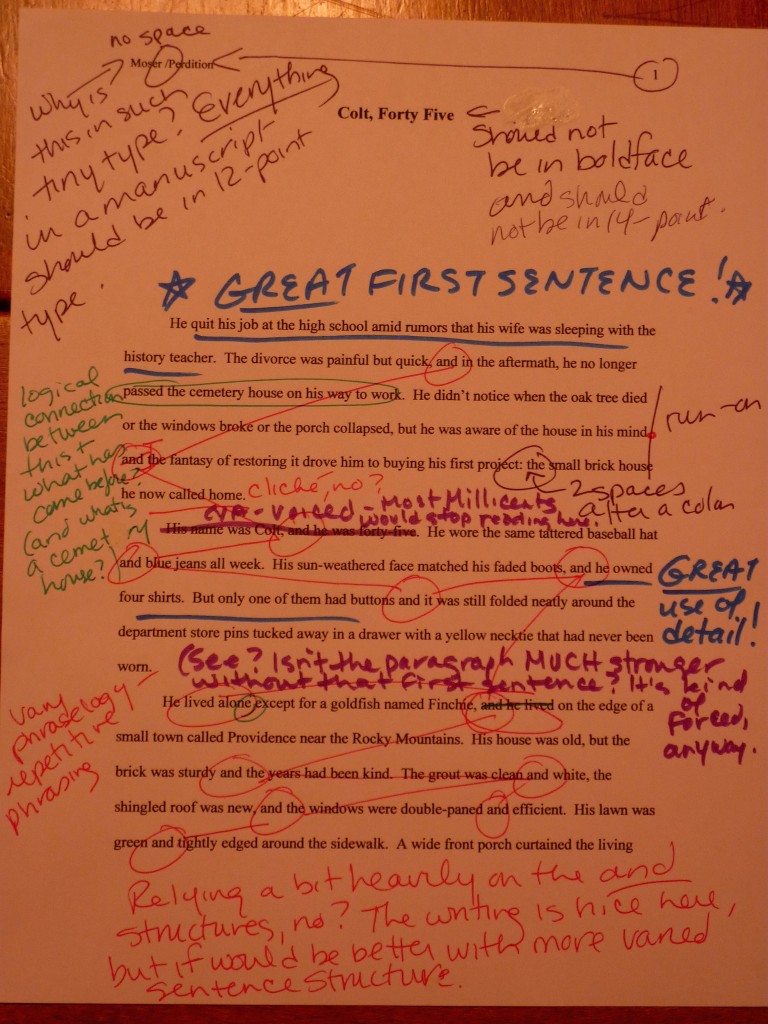 no space
Moser /Perdition
1
Why is
this in such
tiny type? Everything
in a manuscript
should be in 12-point
type.
Colt, Forty Five
Should not
be in boldface
and should
not be in 14-point.
☆ GREAT FIRST SENTENCE! ☆
He quit his job at the high school amid rumors that his wife was sleeping with the
history teacher.  The divorce was painful but quick, and in the aftermath, he no longer
passed the cemetery house on his way to work.  He didn't notice when the oak tree died
or the windows broke or the porch collapsed, but he was aware of the house in his mind
and the fantasy of restoring it drove him to buying his first project: the small brick house
he now called home.
logical
connection
between
this +
what has
come before?
(and what is
a cemetery
house?)
run-on
cliché, no?
2 spaces
after a colon
- voiced - Most Millicents
would stop reading here.
His name was Colt, and he was forty-five.  He wore the same tattered baseball hat
and blue jeans all week.  His sun-weathered face matched his faded boots, and he owned
four shirts.  But only one of them had buttons and it was still folded neatly around the
department store pins tucked away in a drawer with a yellow necktie that had never been
worn.
GREAT
use of
detail!
(See? Isn't the paragraph MUCH stronger
without that first sentence? It's kind
of
forced,
anyway.
He lived alone except for a goldfish named Finchie, and he lived on the edge of a
small town called Providence near the Rocky Mountains.  His house was old, but the
brick was sturdy and the years had been kind.  The grout was clean and white, the
shingled roof was new, and the windows were double-paned and efficient.  His lawn was
green and tightly edged around the sidewalk.  A wide front porch curtained the living
vary
phraseology -
repetitive
phrasing
Relying a bit heavily on the and
structures, no? The writing is nice here,
but it would be better with more varied
sentence structure.